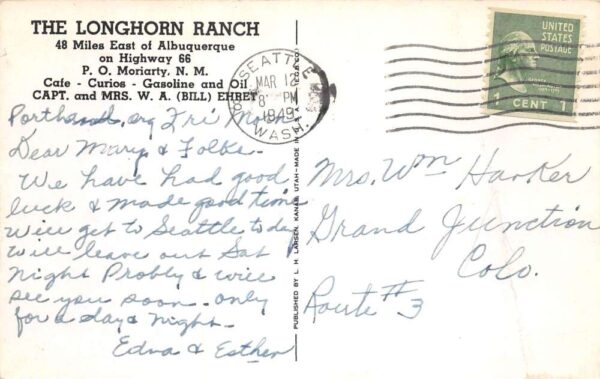 THE LONGHORN RANCH
48 Miles East of Albuquerque
on Highway 66
P. O. Moriarty, N. M.
Cafe - Curios - Gasoline and Oil
CAPT. and MRS. W. A. (BILL) EHRET
Portland, Org Fri Morn
Dear Mary & Folks-
We have had good
luck & made good time
will get to Seattle today
will leave out Sat
night Probly & will
see you soon. only
for a day & night-
Edna & Esther
PUBLISHED BY L. H. LARSEN, KANAB, UTAH-MADE IN U.S.A.
SEATTLE
MAR 12
8 PM
1949
WASH.
UNITED
STATES
POSTAGE
1 CENT 1
Mrs. Wm Harker
Grand Junction
Colo.
Route #3